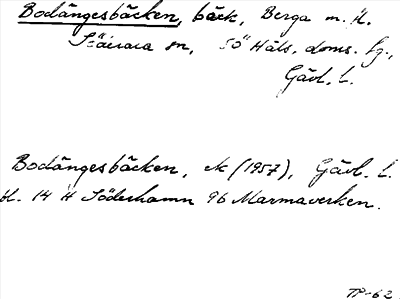 Bodängesbäcken, bäck, Berga m. fl.
sn, SÖ Häls. doms. fg.,
Gävl. l.
Bodängesbäcken, ek (1957), Gävl. l.
bl. 14 H Söderhamn 96 Marmaverken.
TP-62